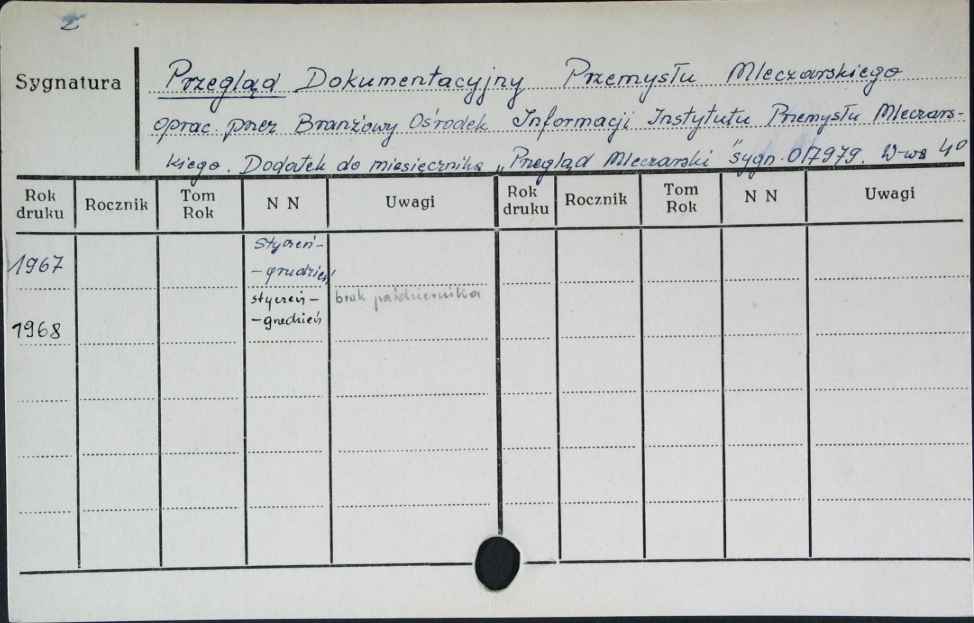 Z
Sygnatura
Przegląd Dokumentacyjny Przemysłu Mleczarskiego
oprac. przez Branżowy Ośrodek Informacji Instytutu Przemysłu Mleczars-
kiego. Dodatek do miesięcznika „Przegląd Mleczarski" sygn. 017979. W-wa 4°
Rok druku Rocznik Tom Rok N N Uwagi Rok druku Rocznik Tom Rok N N Uwagi
1967 styczeń-
-grudzień
1968 styczeń- brak października
-grudzień